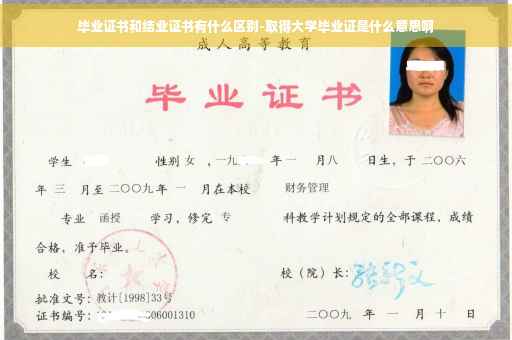 毕业证书和结业证书有什么区别-取得大学毕业证是什么意思啊
成人高等教育
毕业证书
学生 性别 女 ,一九 年 一 月八 日生，于 二〇〇六
年 三 月至 二〇〇九 年 一 月在本校 财务管理
专业 函授 学习，修完 专 科教学计划规定的全部课程，成绩
合格，准予毕业。
校 名： 校（院）长：
批准文号：教计[1998]33号
证书编号： 06001310 二〇〇九 年 一 月 十 日